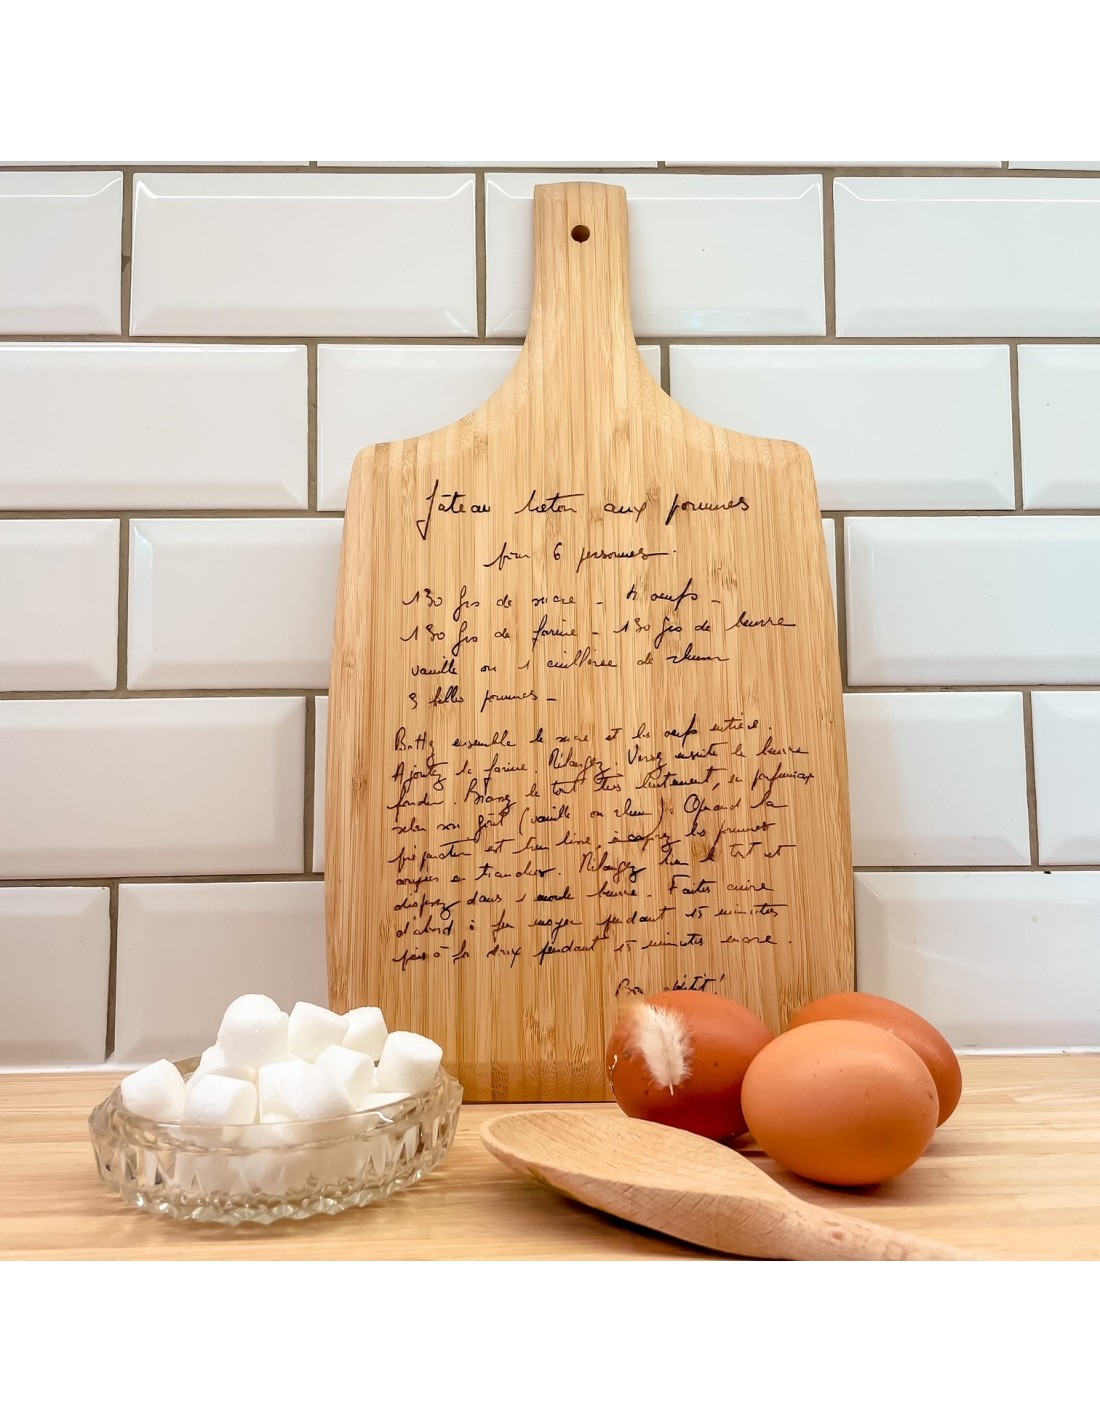 Gâteau breton aux pommes
pour 6 personnes.
130 grs de sucre - 4 oeufs -
130 grs de farine - 130 grs de beurre
vanille ou 1 cuillérée de rhum
3 belles pommes -
Battez ensemble le sucre et les oeufs entière.
Ajoutez la farine. Mélangez. Versez ensuite le beurre
fondu. Brassez le tout très lentement, en parfumant
selon son goût (vanille ou rhum). Quand la
préparation est bien lisse, incorporez les pommes
coupées en tranches. Mélangez bien le tout et
disposez dans 1 moule beurré. Faites cuire
d'abord à feu moyen pendant 15 minutes
puis à feu doux pendant 15 minutes encore.
Bon appétit!